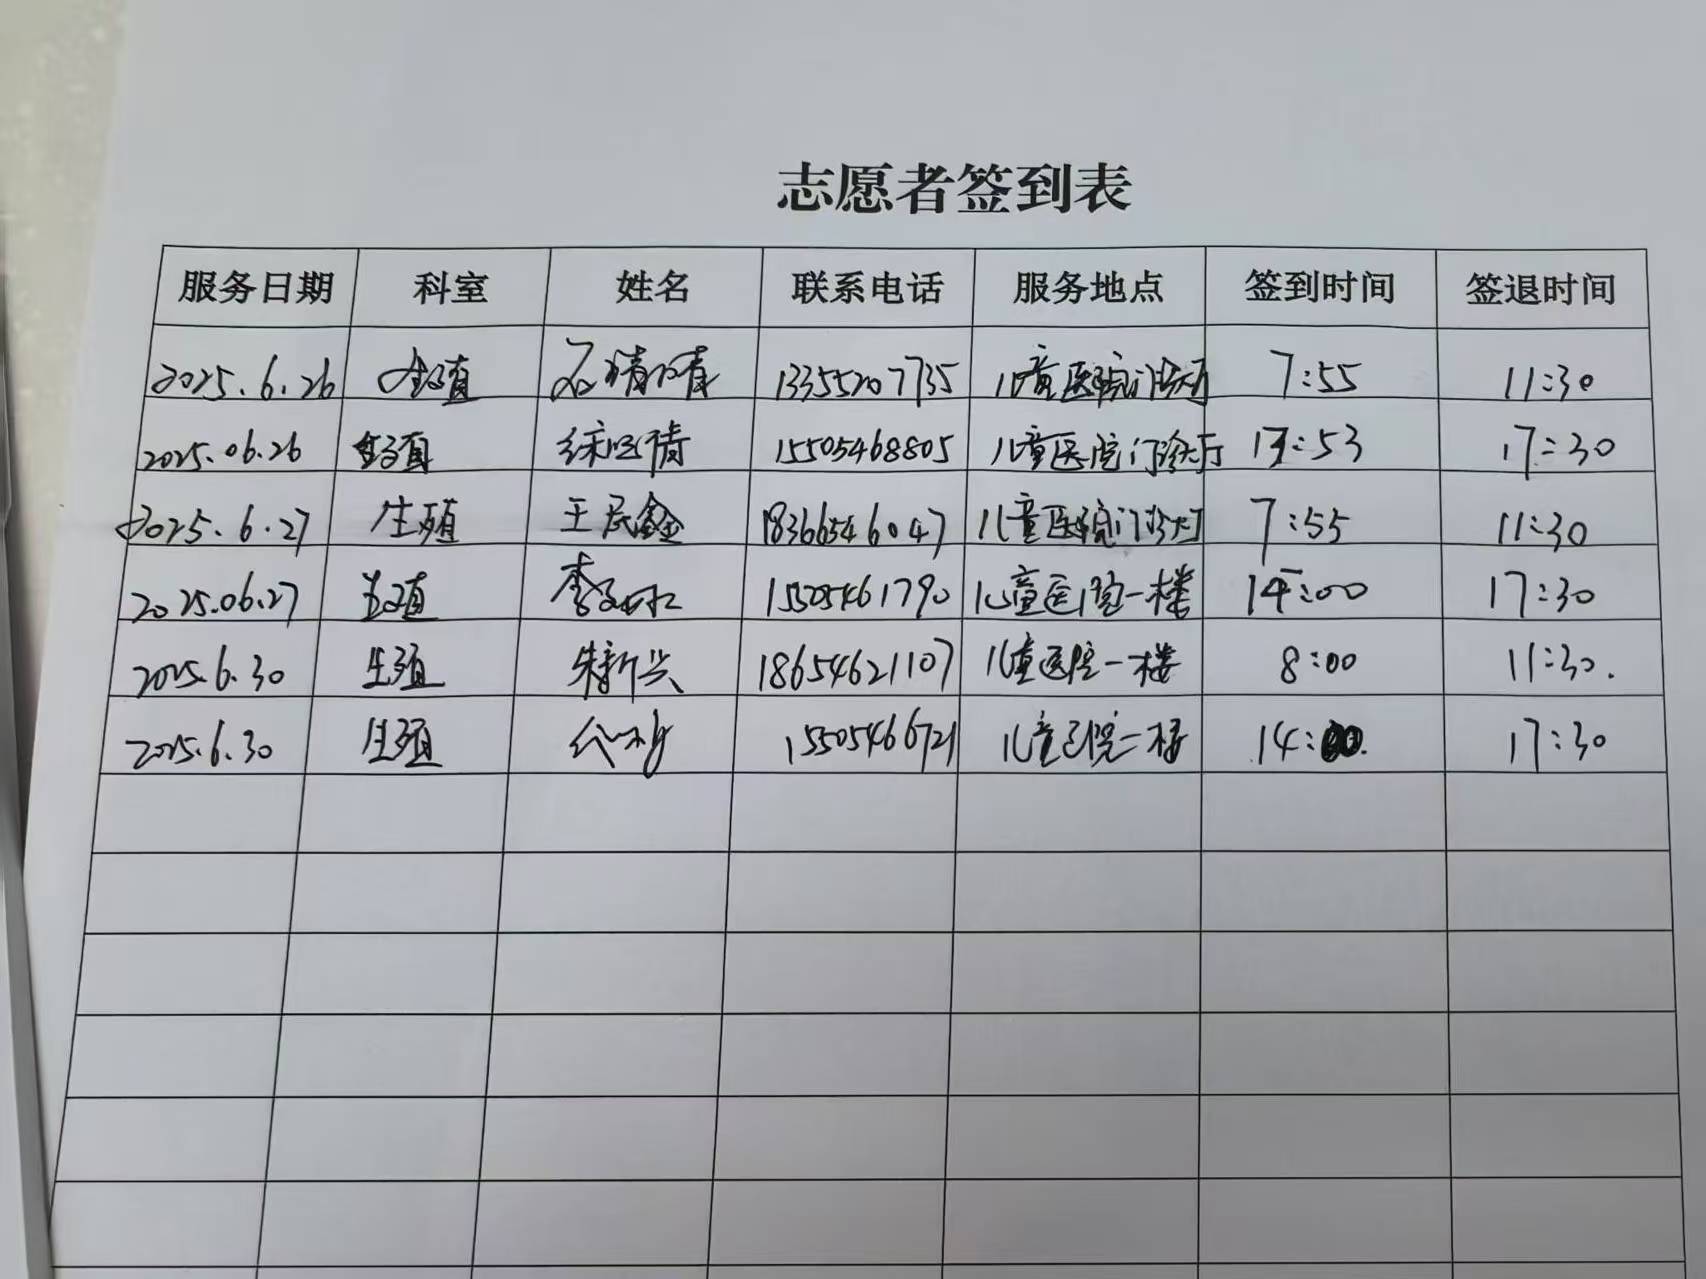 志愿者签到表
服务日期 科室 姓名 联系电话 服务地点 签到时间 签退时间
2025.6.26 生殖 石靖晴 13355207735 儿童医院门诊大厅 7:55 11:30
2025.06.26 生殖 徐 倩 15505468805 儿童医院门诊大厅 13:53 17:30
2025.6.27 生殖 王民鑫 18366546047 儿童医院门诊大厅 7:55 11:30
2025.06.27 生殖 李 15505461790 儿童医院一楼 14:00 17:30
2025.6.30 生殖 朱新兴 18654621107 儿童医院一楼 8:00 11:30.
2025.6.30 生殖 15505466721 儿童医院一楼 14:00. 17:30